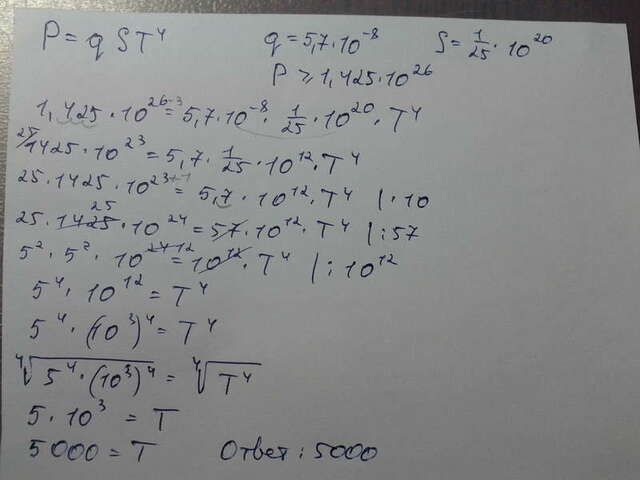 P = q S T⁴ q = 5,7·10⁻⁸ S = 1/25 · 10²⁰
P ⩾ 1,425·10²⁶
1,425·10²⁶⁻³ = 5,7·10⁻⁸ · 1/25 · 10²⁰ · T⁴
25/ 1425·10²³ = 5,7 · 1/25 · 10¹² · T⁴
25·1425·10²³⁺¹ = 5,7 · 10¹² · T⁴ | · 10
25
25·1425·10²⁴ = 57·10¹² · T⁴ | : 57
5² · 5² · 10²⁴⁻¹² = 10¹² · T⁴ | : 10¹²
5⁴ · 10¹² = T⁴
5⁴ · (10³)⁴ = T⁴
⁴√5⁴·(10³)⁴ = ⁴√T⁴
5 · 10³ = T
5000 = T Ответ : 5000